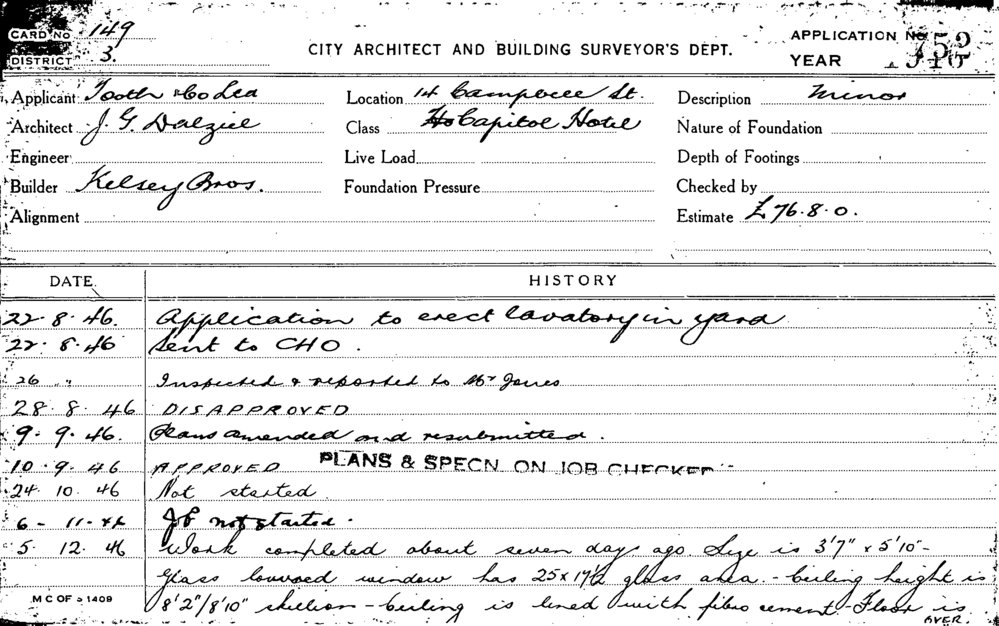 CARD No 149
DISTRICT 3.
CITY ARCHITECT AND BUILDING SURVEYOR'S DEPT.
APPLICATION No 752
YEAR
Applicant Tooth & Co Ltd
Location 14 Campbell St.
Description Minor
Architect J. G. Dalziel
Class Capitol Hotel
Nature of Foundation
Engineer
Live Load
Depth of Footings
Builder Kelsey Bros.
Foundation Pressure
Checked by
Alignment
Estimate £76.8.0.
DATE.
HISTORY
22.8.46. Application to erect lavatory in yard
22.8.46 Sent to CHO.
26 " Inspected & reported to Mr Jones
28.8.46 DISAPPROVED
9.9.46. Plans amended and resubmitted.
10.9.46 APPROVED PLANS & SPECN ON JOB CHECKED
24.10.46 Not started
6-11-46 Job not started.
5.12.46 Work completed about seven days ago. Size is 3'7" x 5'10" -
Glass louvred window has 25 x 17½ glass area. - Ceiling height is
M C OF S 1409 8'2"/8'10" skillion - ceiling is lined with fibro cement - Floor is
OVER.